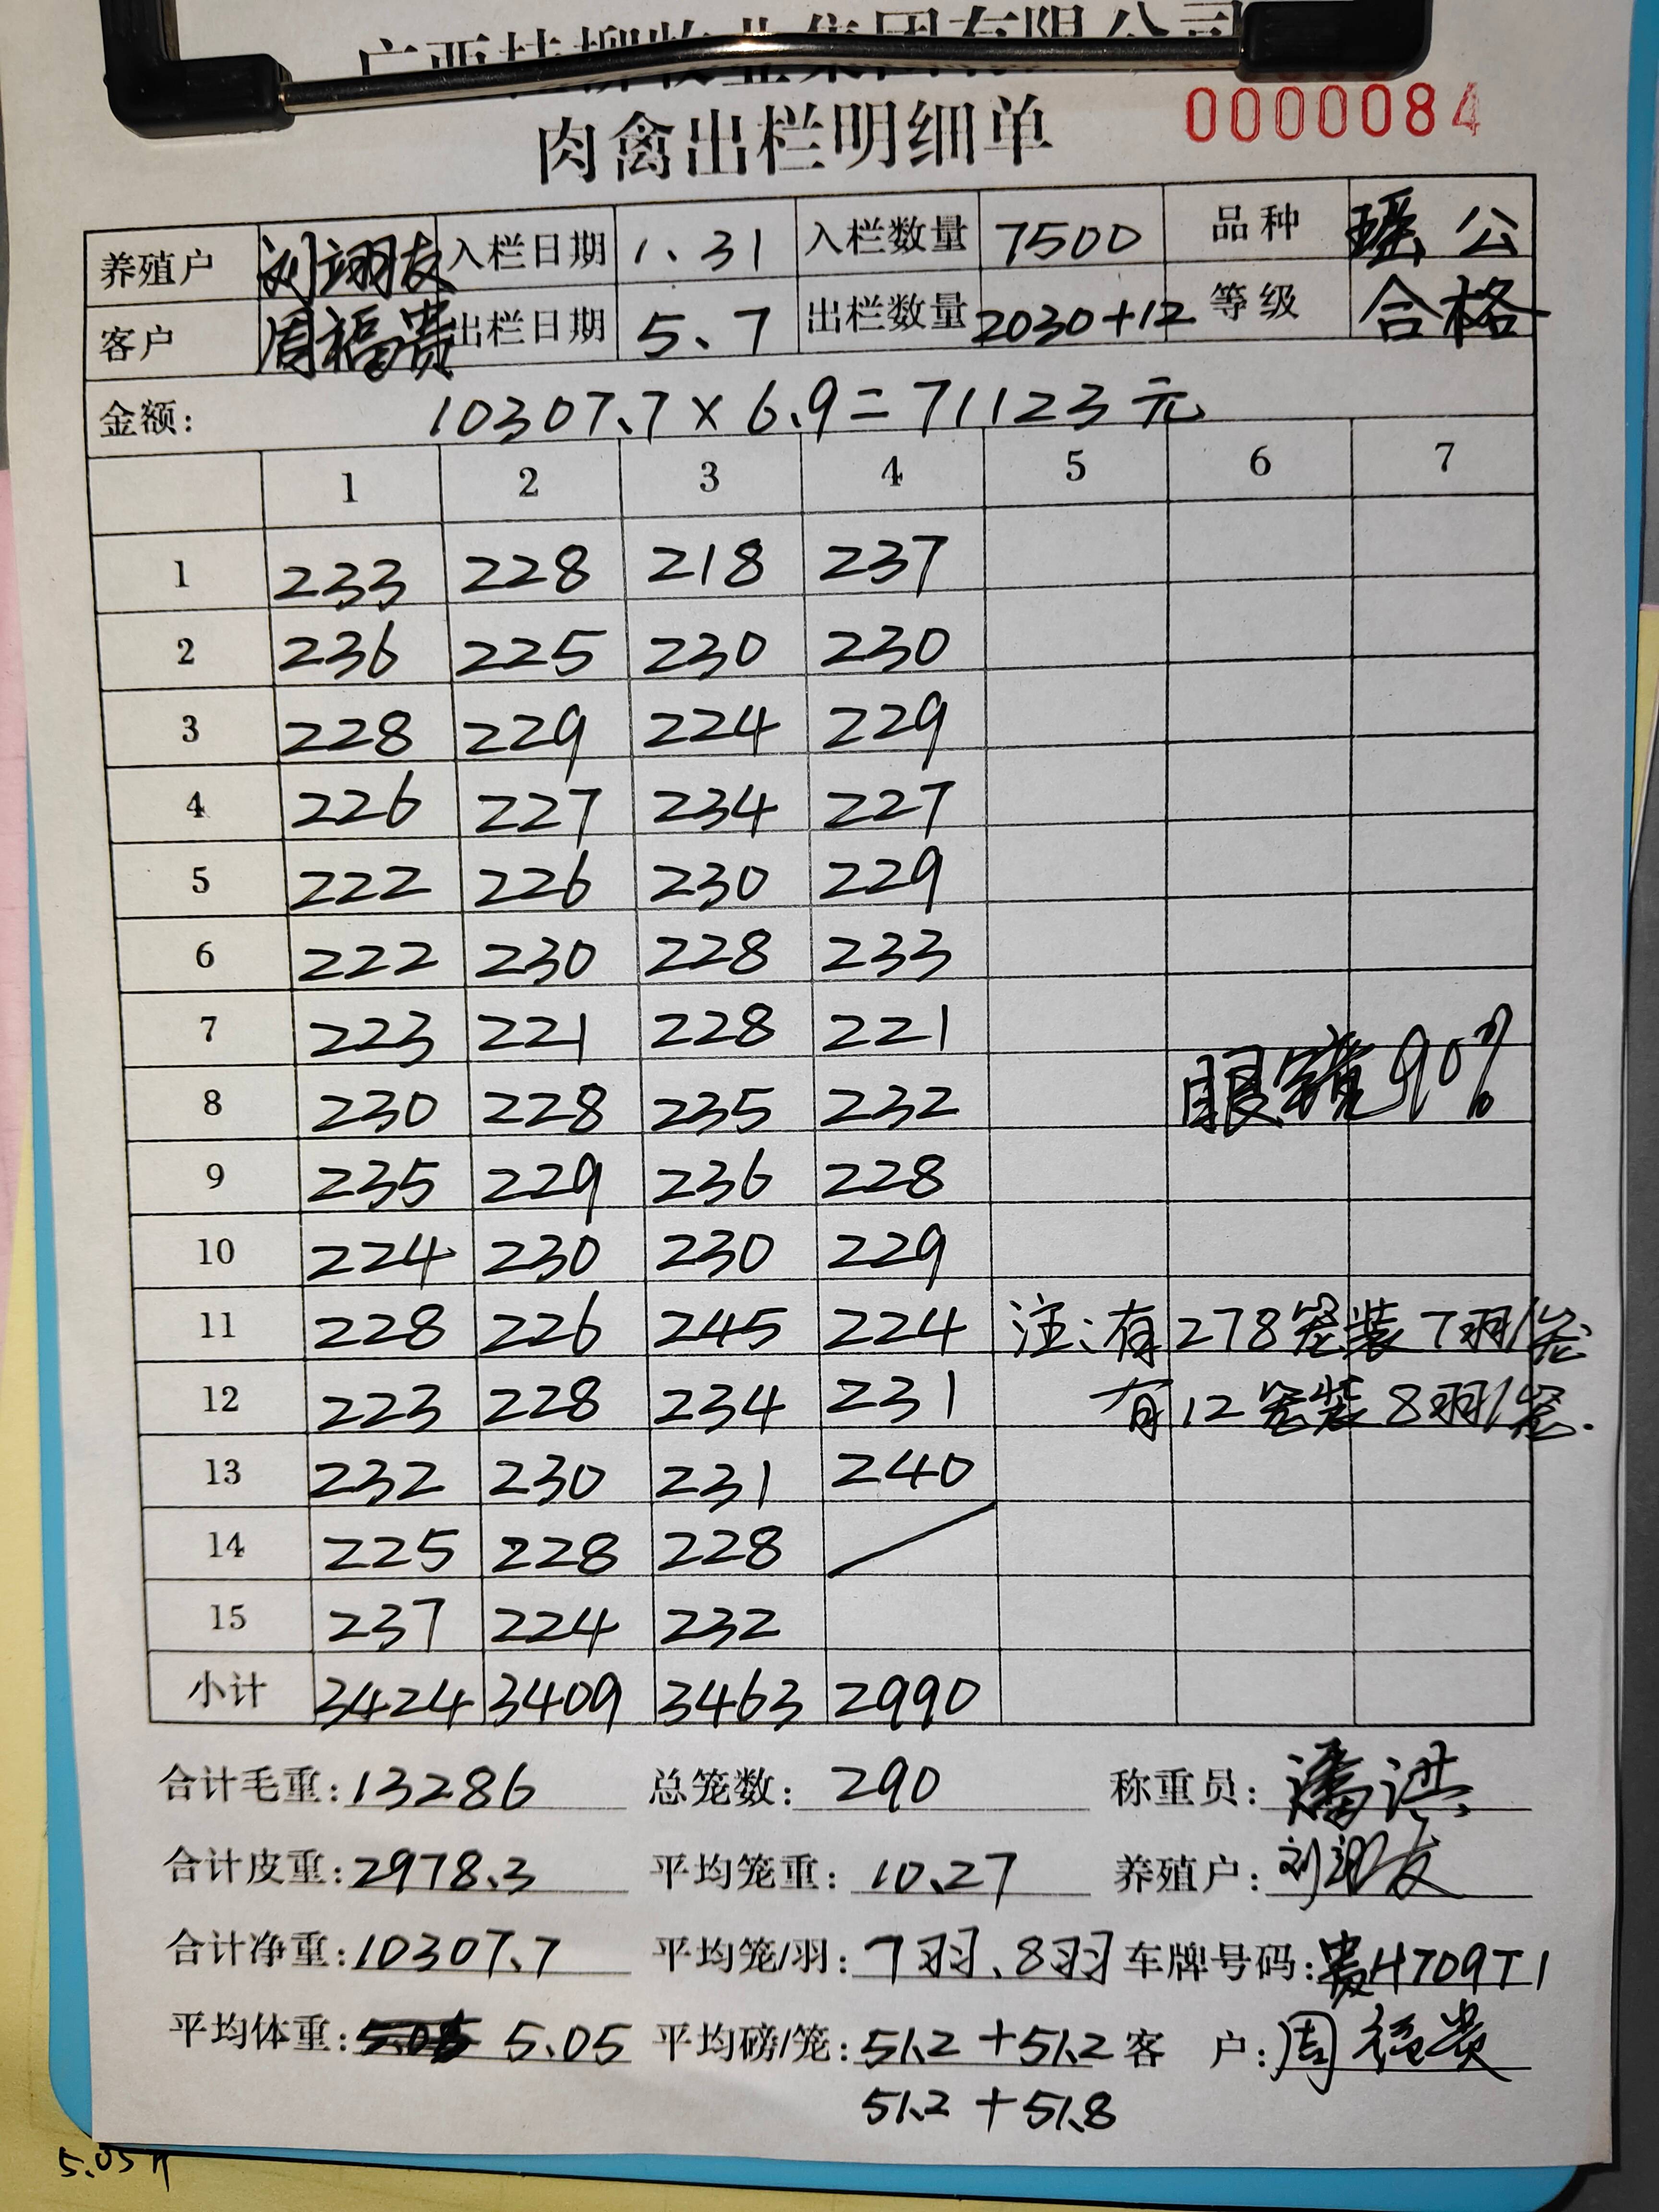 肉禽出栏明细单 0000084
养殖户 刘翊友 入栏日期 1、31 入栏数量 7500 品种 瑶公
客户 周福贵 出栏日期 5、7 出栏数量 2030+12 等级 合格
金额: 10307.7×6.9=71123元
1 2 3 4 5 6 7
1 233 228 218 237
2 236 225 230 230
3 228 229 224 229
4 226 227 234 227
5 222 226 230 229
6 222 230 228 233
7 223 221 228 221
8 230 228 235 232 眼 90%
9 235 229 236 228
10 224 230 230 229
11 228 226 245 224 注:有278笼装7羽/笼
12 223 228 234 231 有12笼装8羽/笼.
13 232 230 231 240
14 225 228 228 /
15 237 224 232
小计 3424 3409 3463 2990
合计毛重:13286 总笼数:290 称重员:潘洪
合计皮重:2978.3 平均笼重:10.27 养殖户:刘翊友
合计净重:10307.7 平均笼/羽:7羽、8羽 车牌号码:贵H709T1
平均体重:5.05 平均磅/笼:51.2+51.2 客 户:周福贵
51.2+51.8
5.05